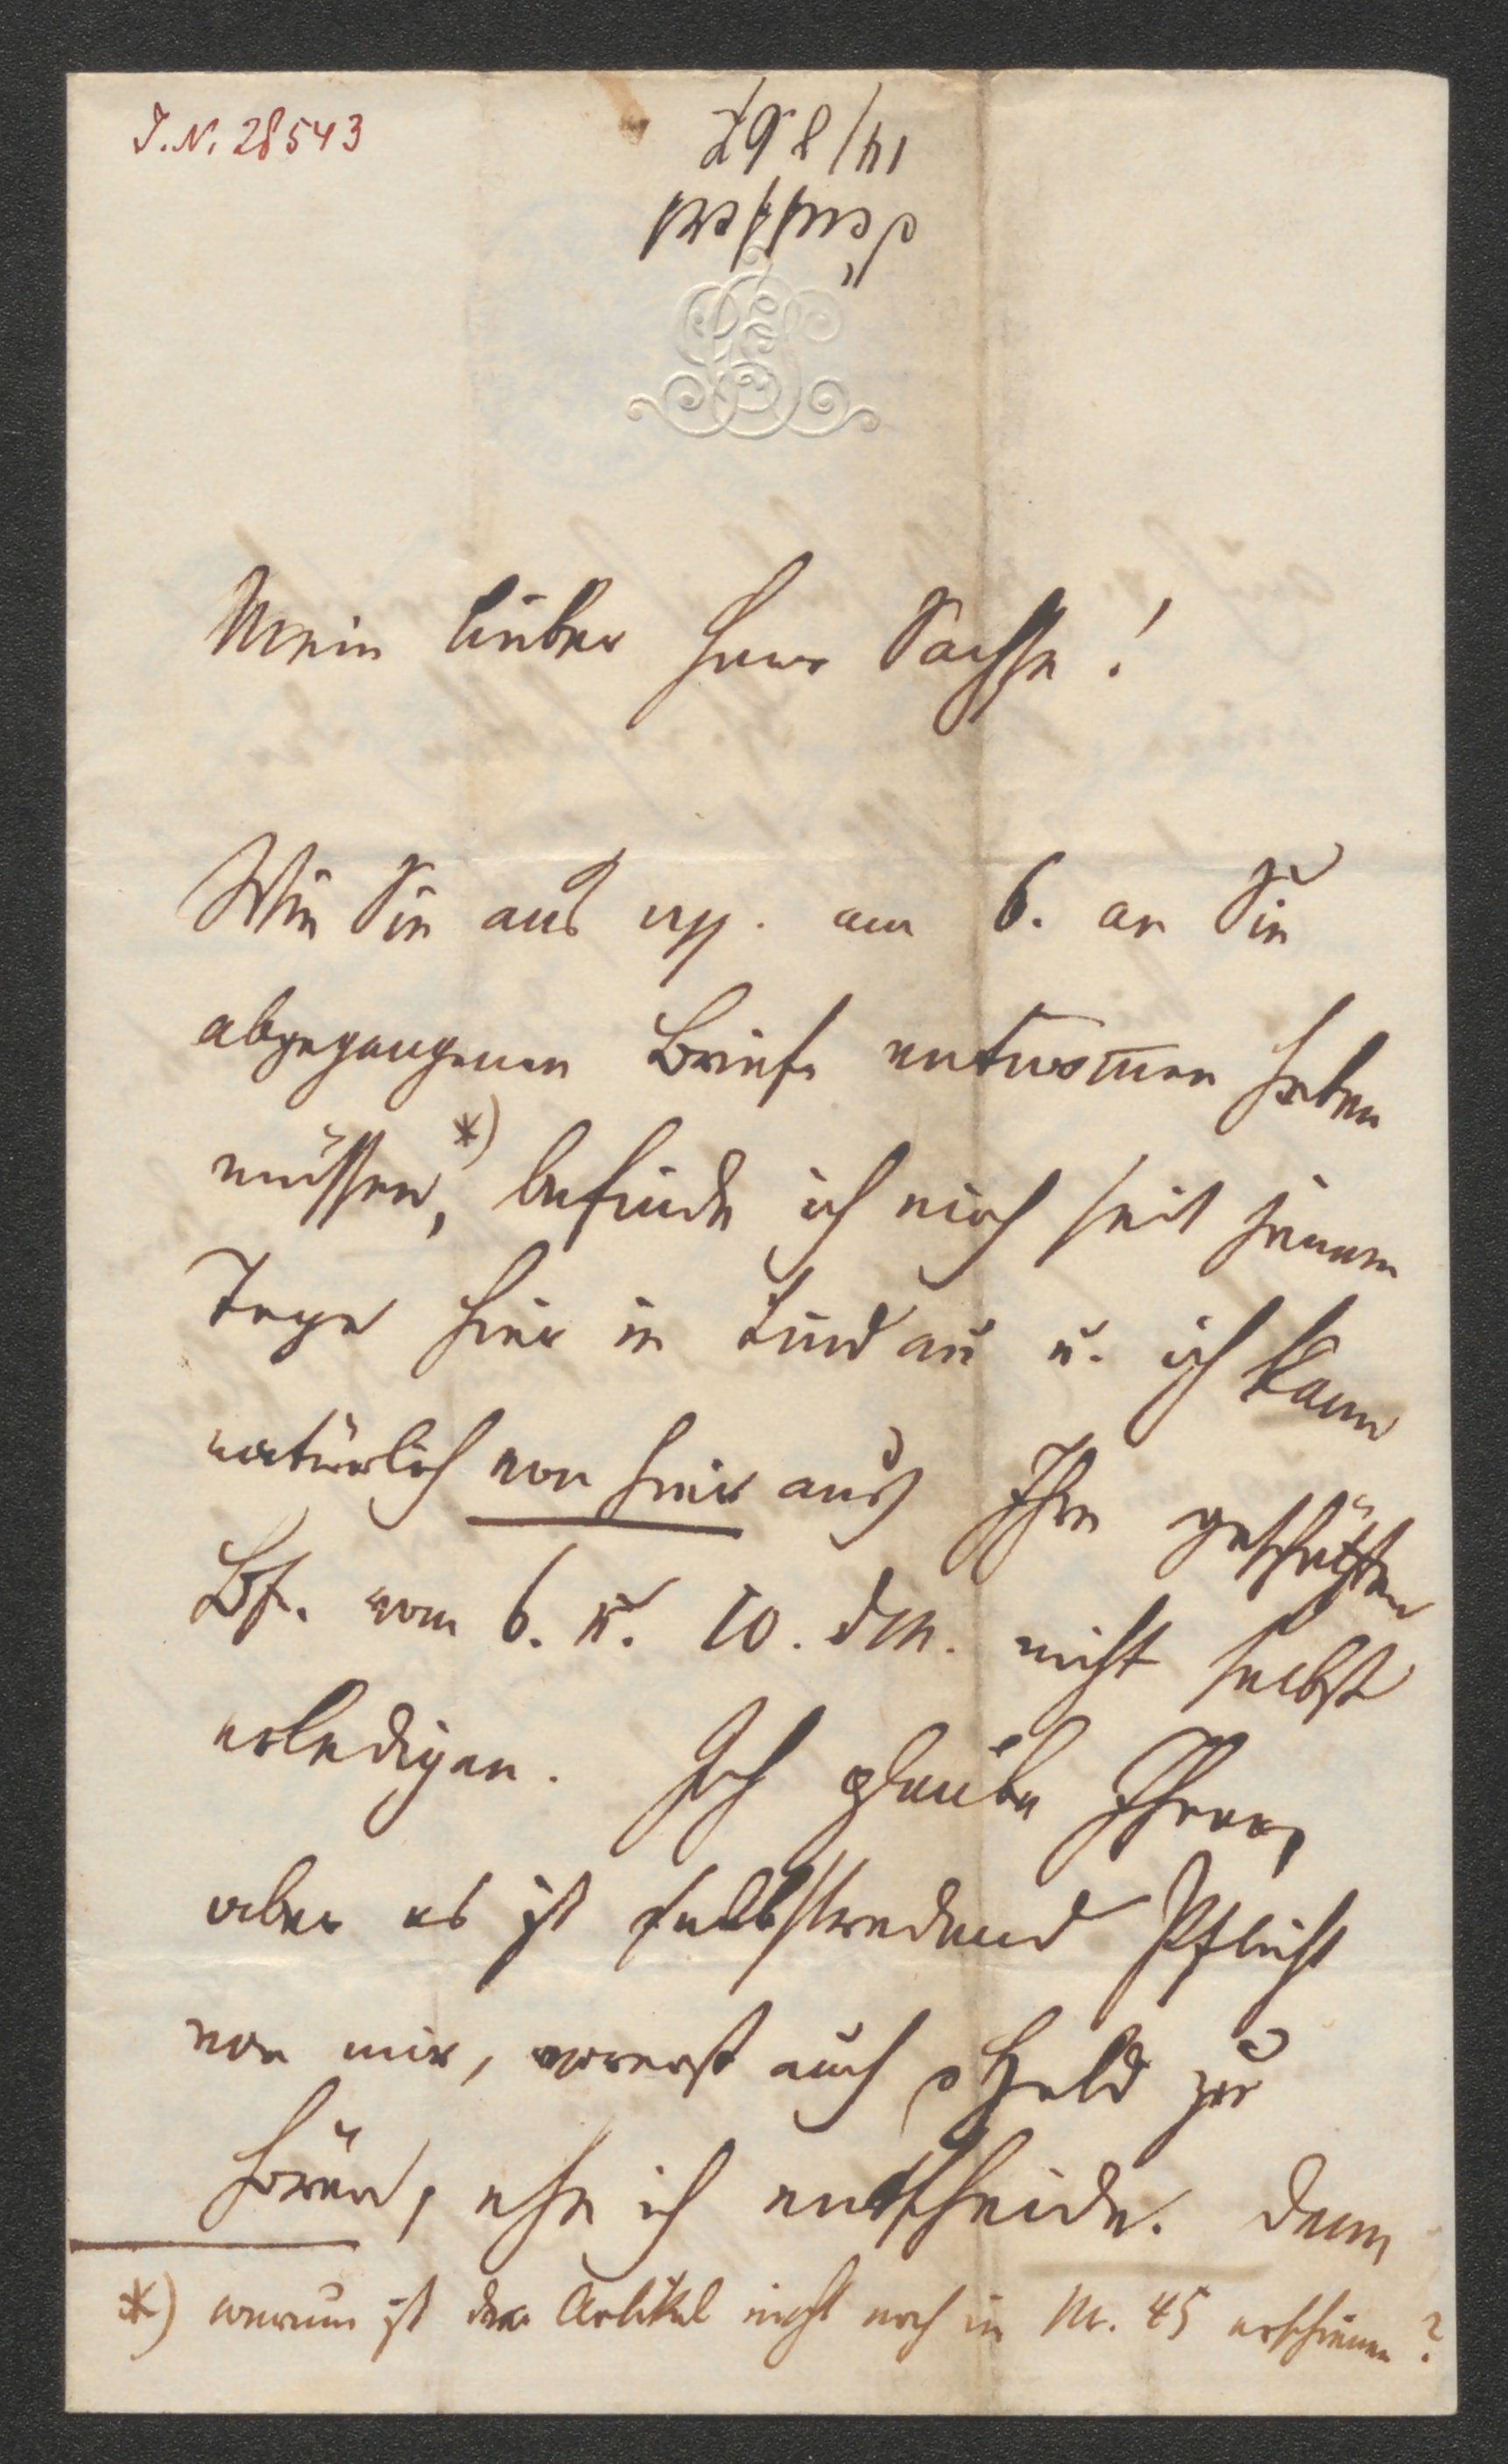 I.N. 28543
14/8 67
Mein lieber Herr Sachse!
Wie Sie aus am 6. an Sie
abgegangenen Briefe entnom̅en haben
müssen,*) befinde ich mich seit jenem
Tage hier in Lindau u. ich kann
natürlich von hier aus Ihre geschätzten
Bf. vom 6. u. 10. dM. nicht selbst
erledigen. Ich glaube Ihnen,
aber es ist selbstredend Pflicht
von mir, vorerst auch Held zu
hören, ehe ich entscheide. Denn
*) warum ist der Artikel nicht noch in Nr. 45 erschienen?